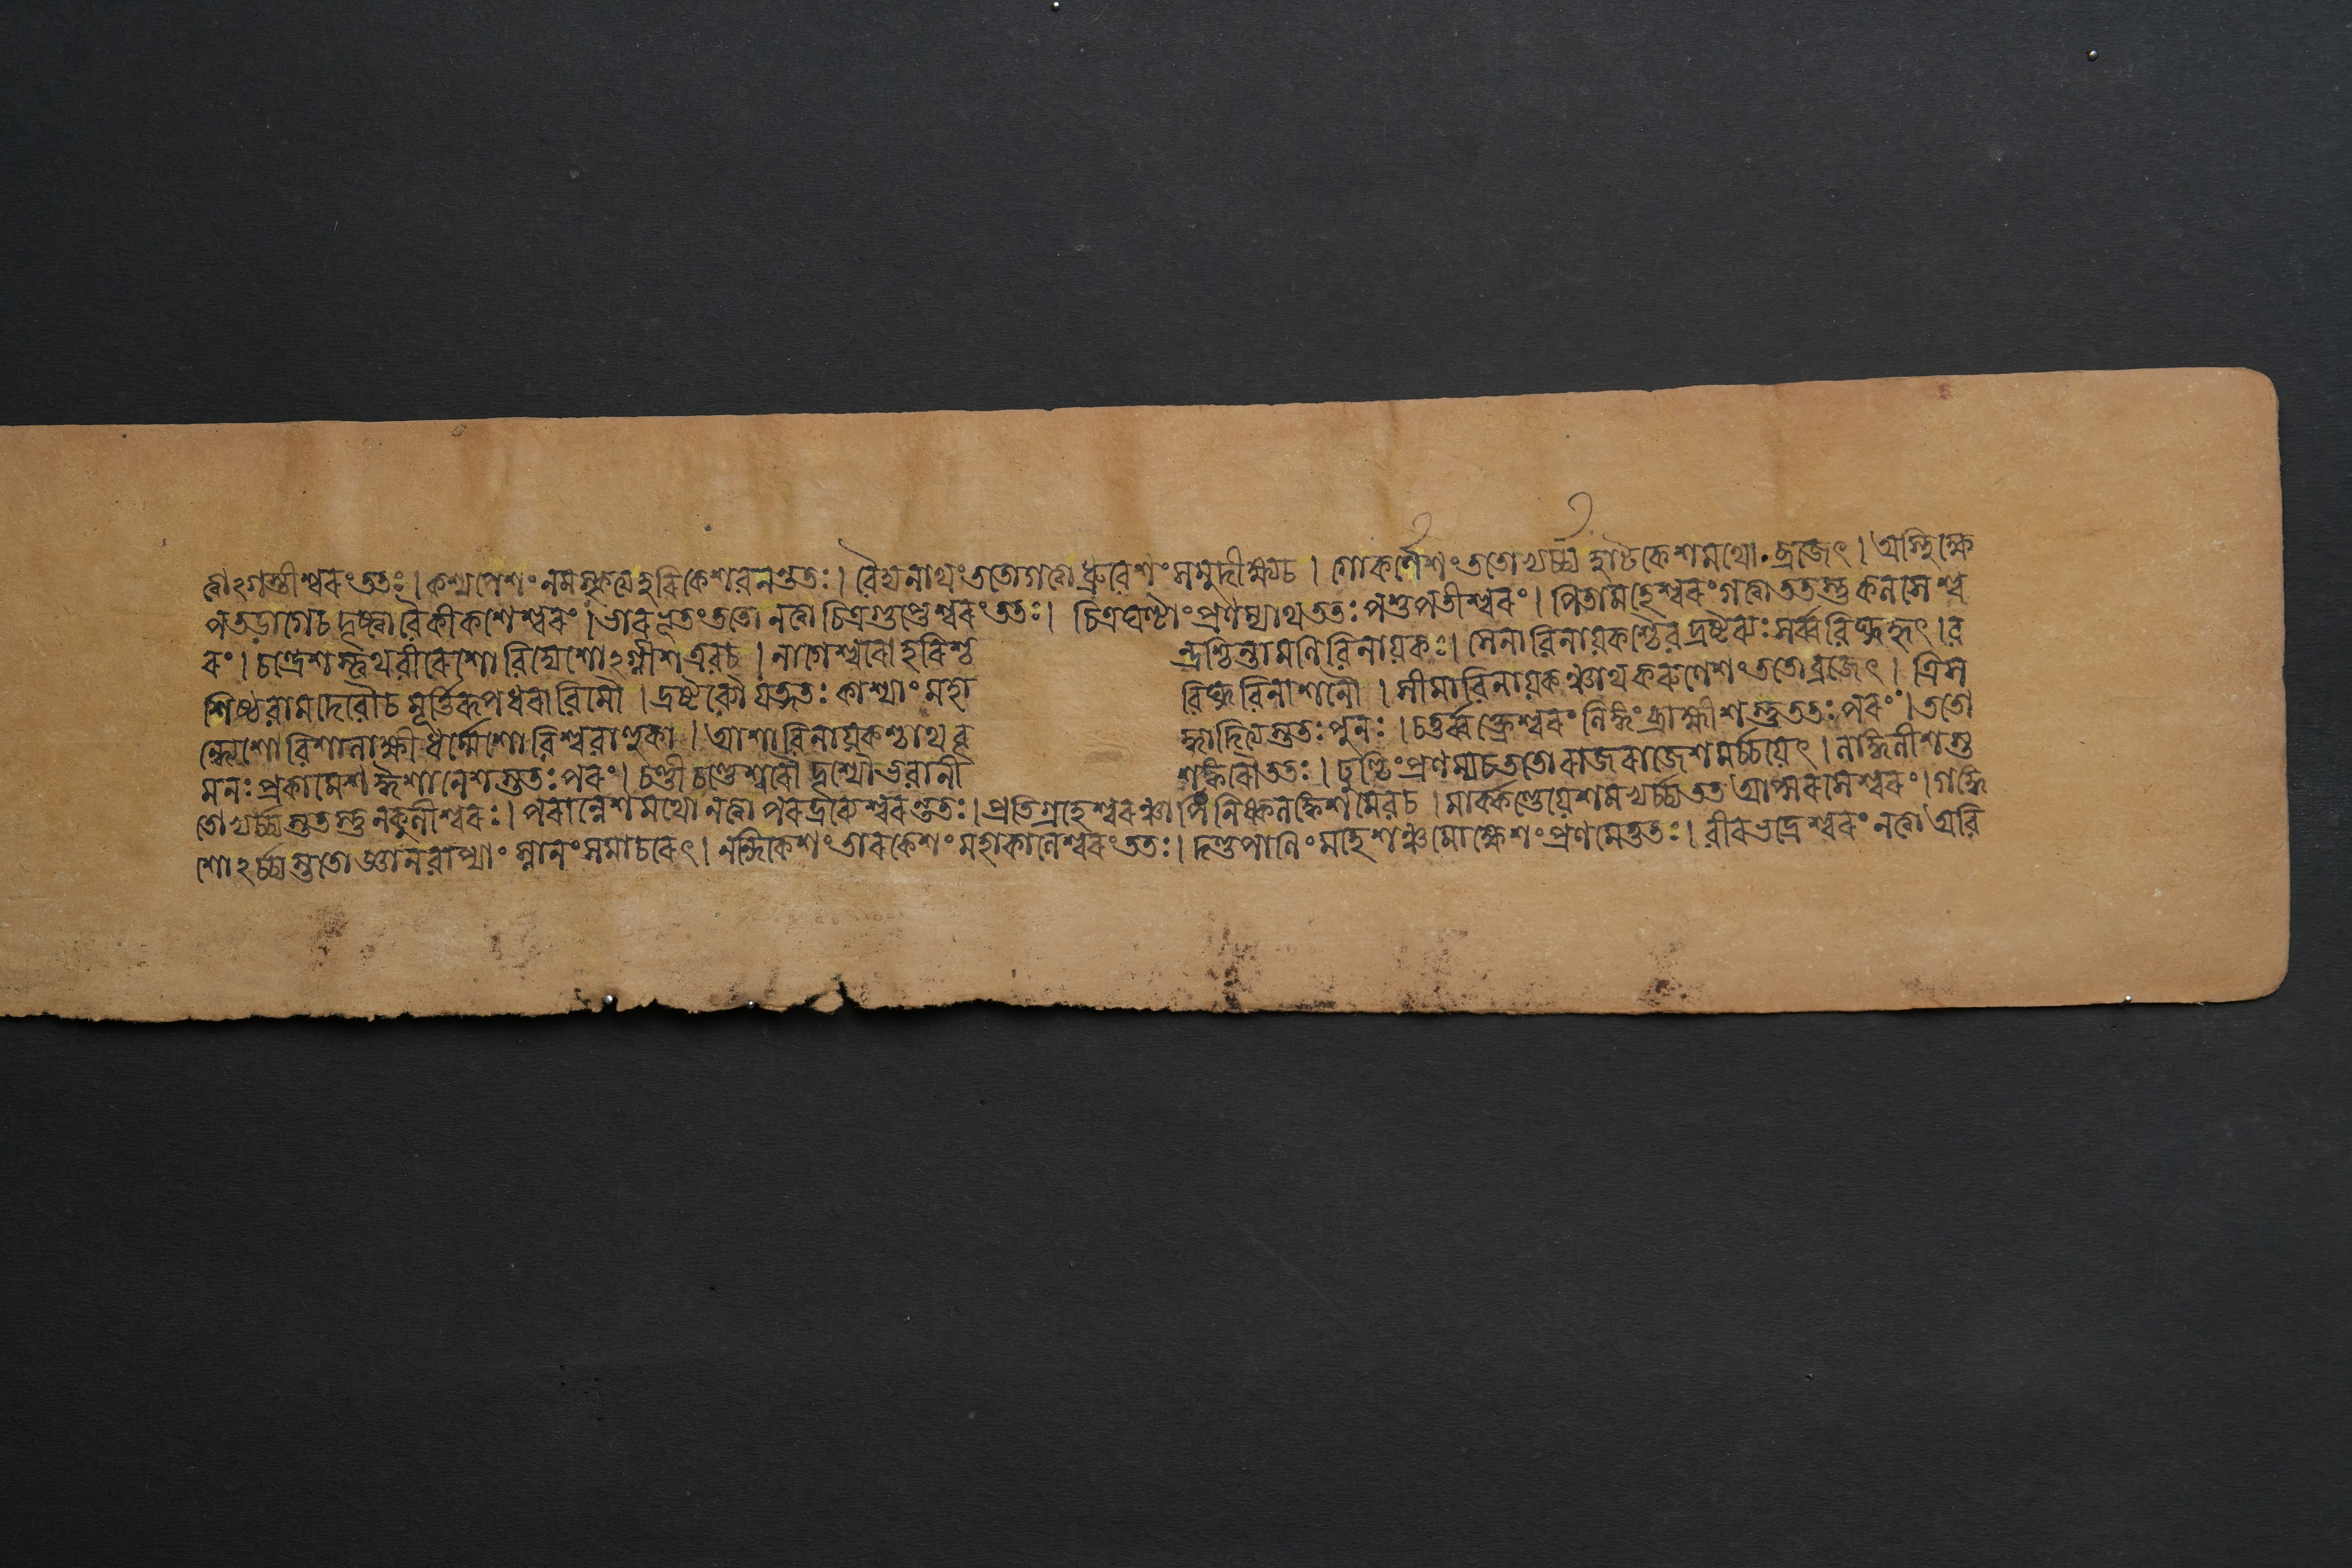 ত্বাঽগস্তীশ্বরং ততঃ। কশ্যপেশং নমস্কৃত্য হরিকেশবনন্ততঃ। বৈদ্যনাথং ততো গত্বা ধ্রুবেশং সমুদীক্ষ্য চ। গোকর্ণেশং ততোভ্যর্চ্চ্য হাটকেশমথো ব্রজেৎ। অস্থিক্ষে
পতড়াগে চ দৃষ্ট্বা বৈ কীকশেশ্বরং। ভারভূতং ততো নত্বা চিত্রগুপ্তেশ্বরং ততঃ। চিত্রঘণ্টাং প্রণম্যাথ ততঃ পশুপতীশ্বরং। পিতামহেশ্বরং গত্বা ততস্তু কলসেশ্ব
রং। চন্দ্রেশস্ত্বথ বীরেশো বিদ্যেশোঽগ্নীশ এব চ। নাগেশ্বরো হরিশ্চ ন্দ্রশ্চিন্তামণিবিনায়কঃ। সেনাবিনায়কশ্চৈব দ্রষ্টব্যঃ সর্ব্ববিঘ্নহৃৎ। ব
শিষ্ঠবামদেবৌ চ মূর্ত্তিরূপধরাবিমৌ। দ্রষ্টব্যৌ যত্নতঃ কাশ্যাং মহা বিঘ্নবিনাশনৌ। সীমাবিনায়কঞ্চাথ করুণেশং ততো ব্রজেৎ। ত্রিস
ন্ধ্যেশো বিশালাক্ষী ধর্ম্মেশো বিশ্ববাহুকা। আশাবিনায়কশ্চাথ বৃ দ্ধাদিত্যস্ততঃ পুনঃ। চতুর্ব্বক্ত্রেশ্বরং লিঙ্গং ব্রাহ্মীশস্তু ততঃ পরং। ততো
মনঃপ্রকামেশ ঈশানেশস্ততঃ পরং। চণ্ডী চণ্ডেশ্বরৌ দৃশ্যৌ ভবানী শঙ্করৌ ততঃ। ঢুণ্ঢিং প্রণম্য চ ততো রাজরাজেশমর্চ্চয়েৎ। লাঙ্গলীশস্ত
তোভ্যর্চ্চ্যস্ততস্তু নকুলীশ্বরঃ। পরান্নেশমথো নত্বা পরদ্রব্যেশ্বরন্ততঃ। প্রতিগ্রহেশ্বরঞ্চাপি নিষ্কলঙ্কেশমেব চ। মার্কণ্ডেয়েশমভ্যর্চ্চ্য তত আপ্সরসেশ্বরং। গঙ্গে
শোঽর্চ্চ্যস্ততো জ্ঞানবাপ্যাং স্নানং সমাচরেৎ। নন্দিকেশং তারকেশং মহাকালেশ্বরং ততঃ। দণ্ডপাণিং মহেশঞ্চ মোক্ষেশং প্রণমেত্ততঃ। বীরভদ্রেশ্বরং নত্বা অবি